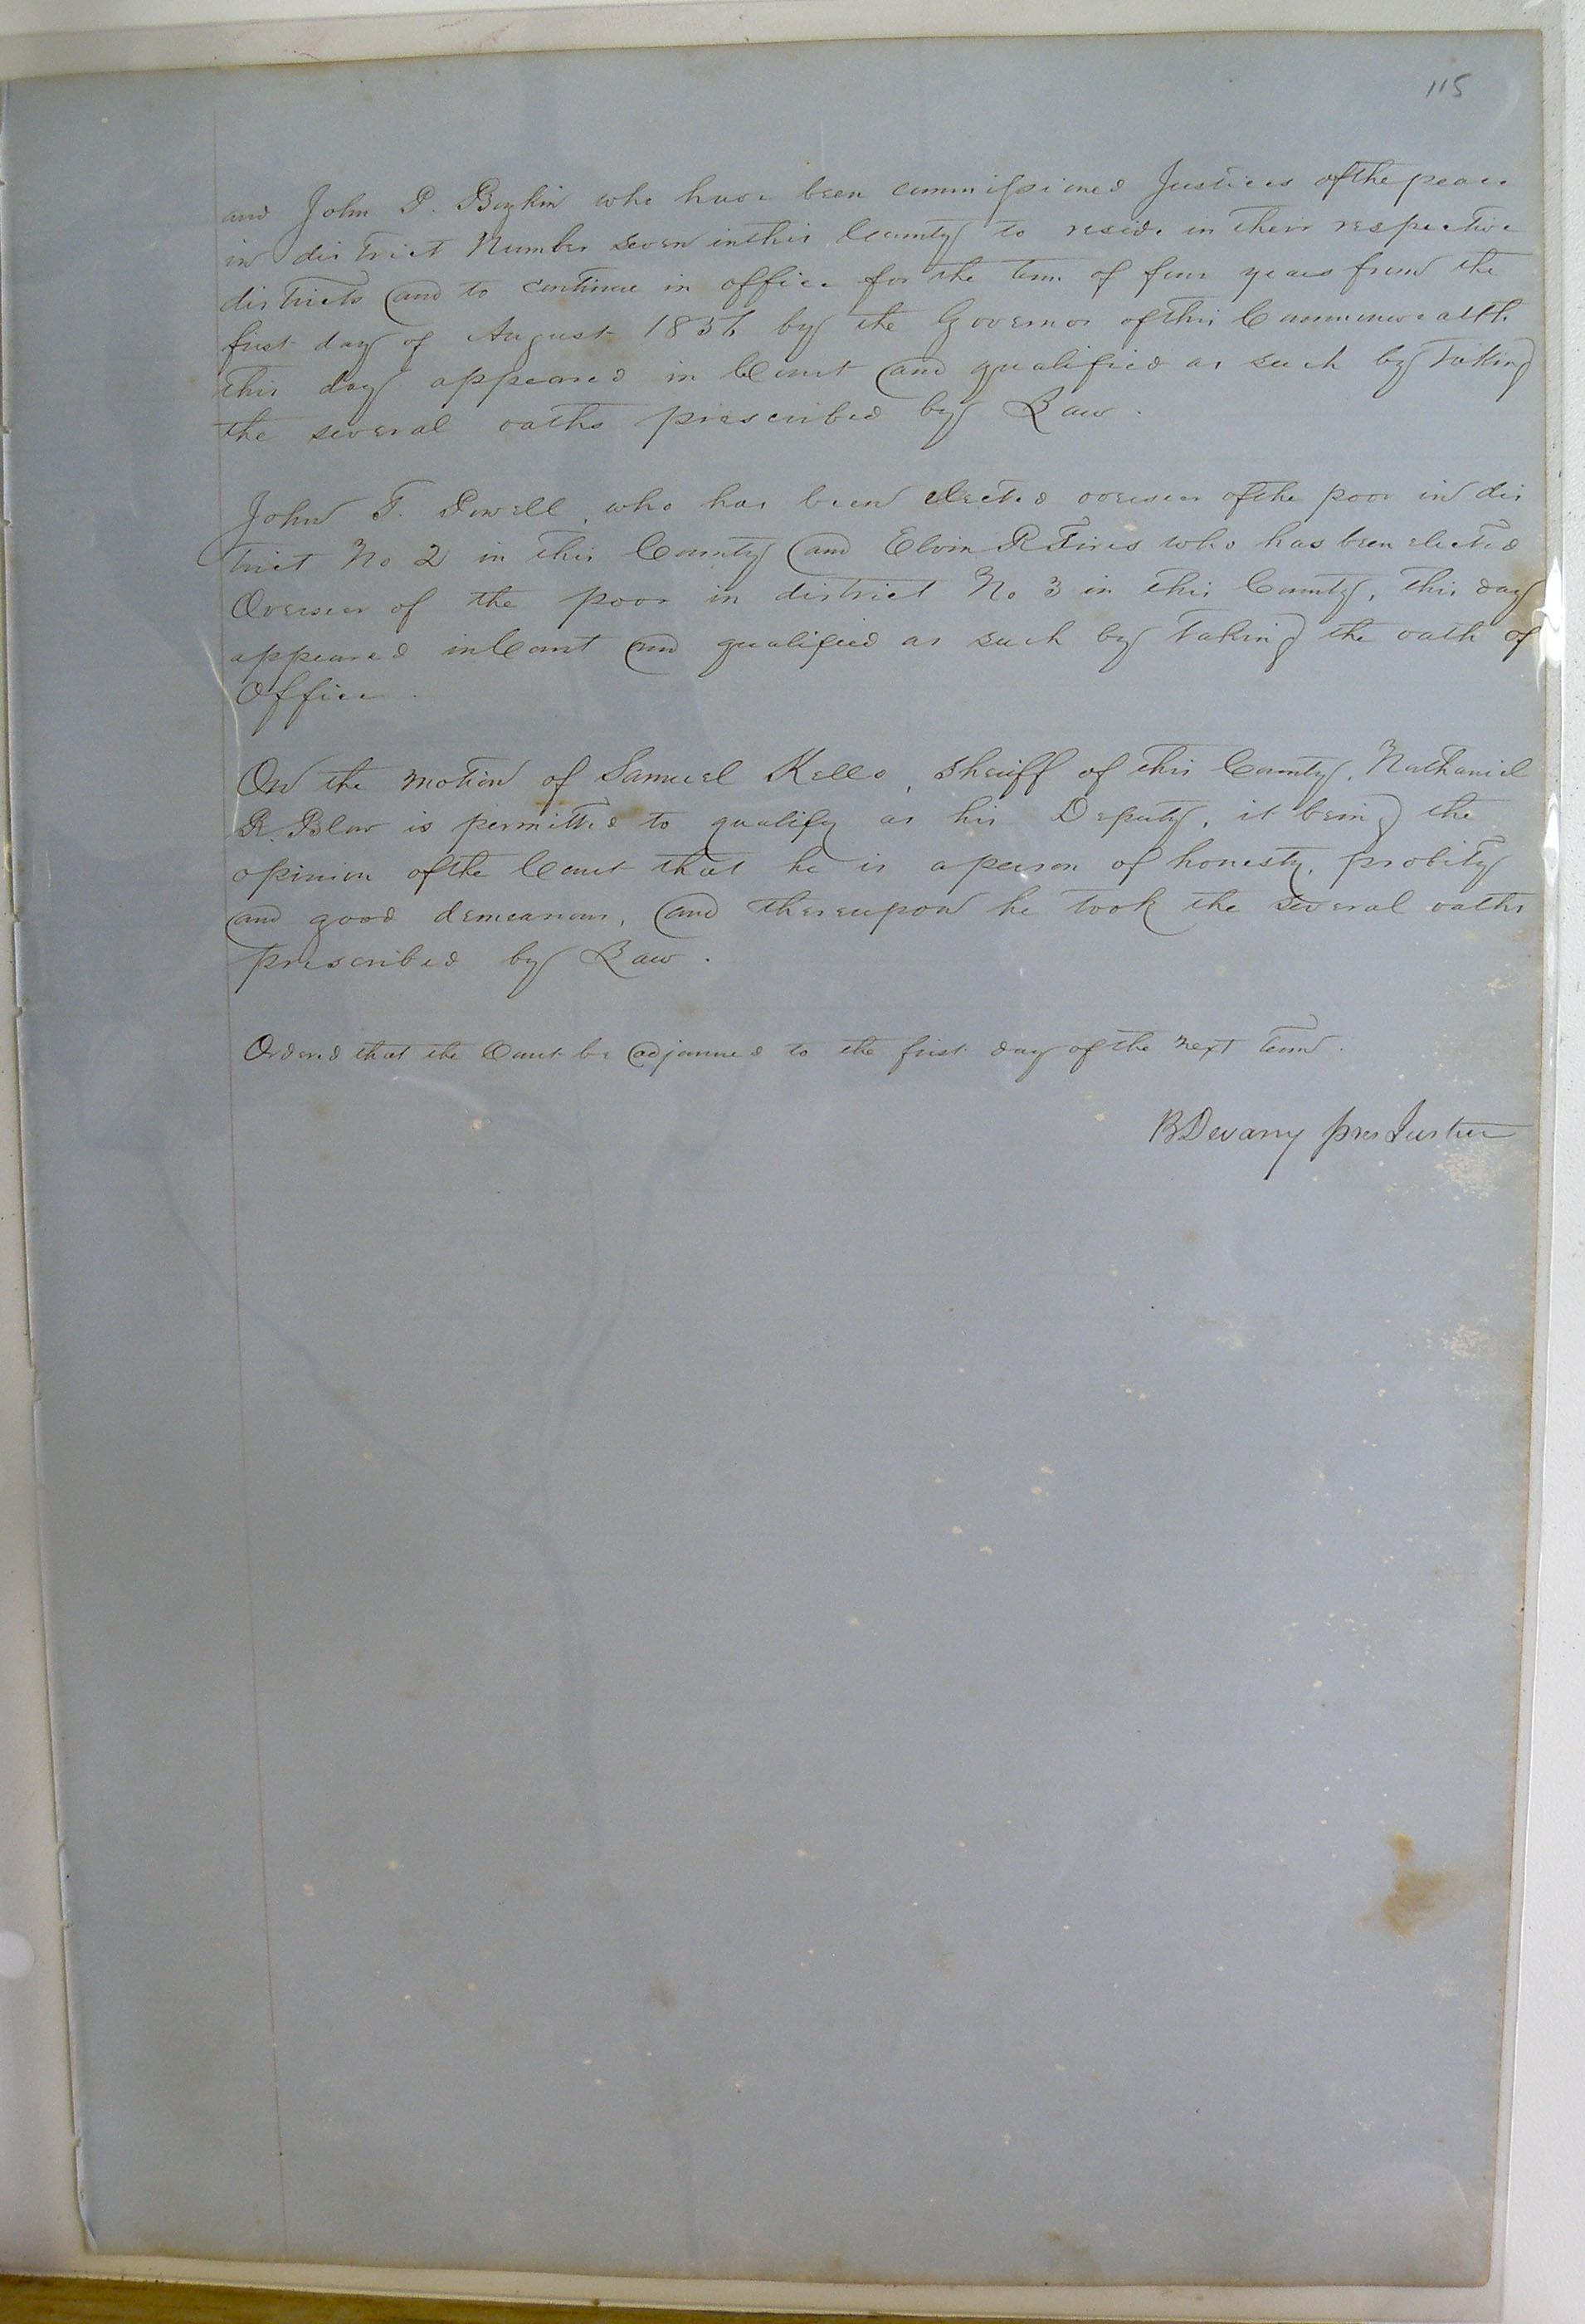 115
and John D. Boykin who have been commissioned Justices of the peace
in district Number seven in this County to reside in their respective
districts and to continue in office for the term of four years from the
first day of August by the Governor of this Commonwealth
this day appeared in Court and qualified as such by taking
the several oaths prescribed by Law.
John T. who has been elected overseer of the poor in dis
trict No 2 in this County and Elvin R who has been elected
Overseer of the poor in district No 3 in this County, this day
appeared in Court and qualified as such by taking the oath of
Office.
On the motion of Samuel Kello, Sheriff of this County, Nathaniel
R. Blow is permitted to qualify as his Deputy, it being the
opinion of the Court that he is a person of honesty, probity
and good demeanour, and thereupon he took the several oaths
prescribed by Law.
Ordered that the Court be adjourned to the first day of the next term.
B Devany pres Justice